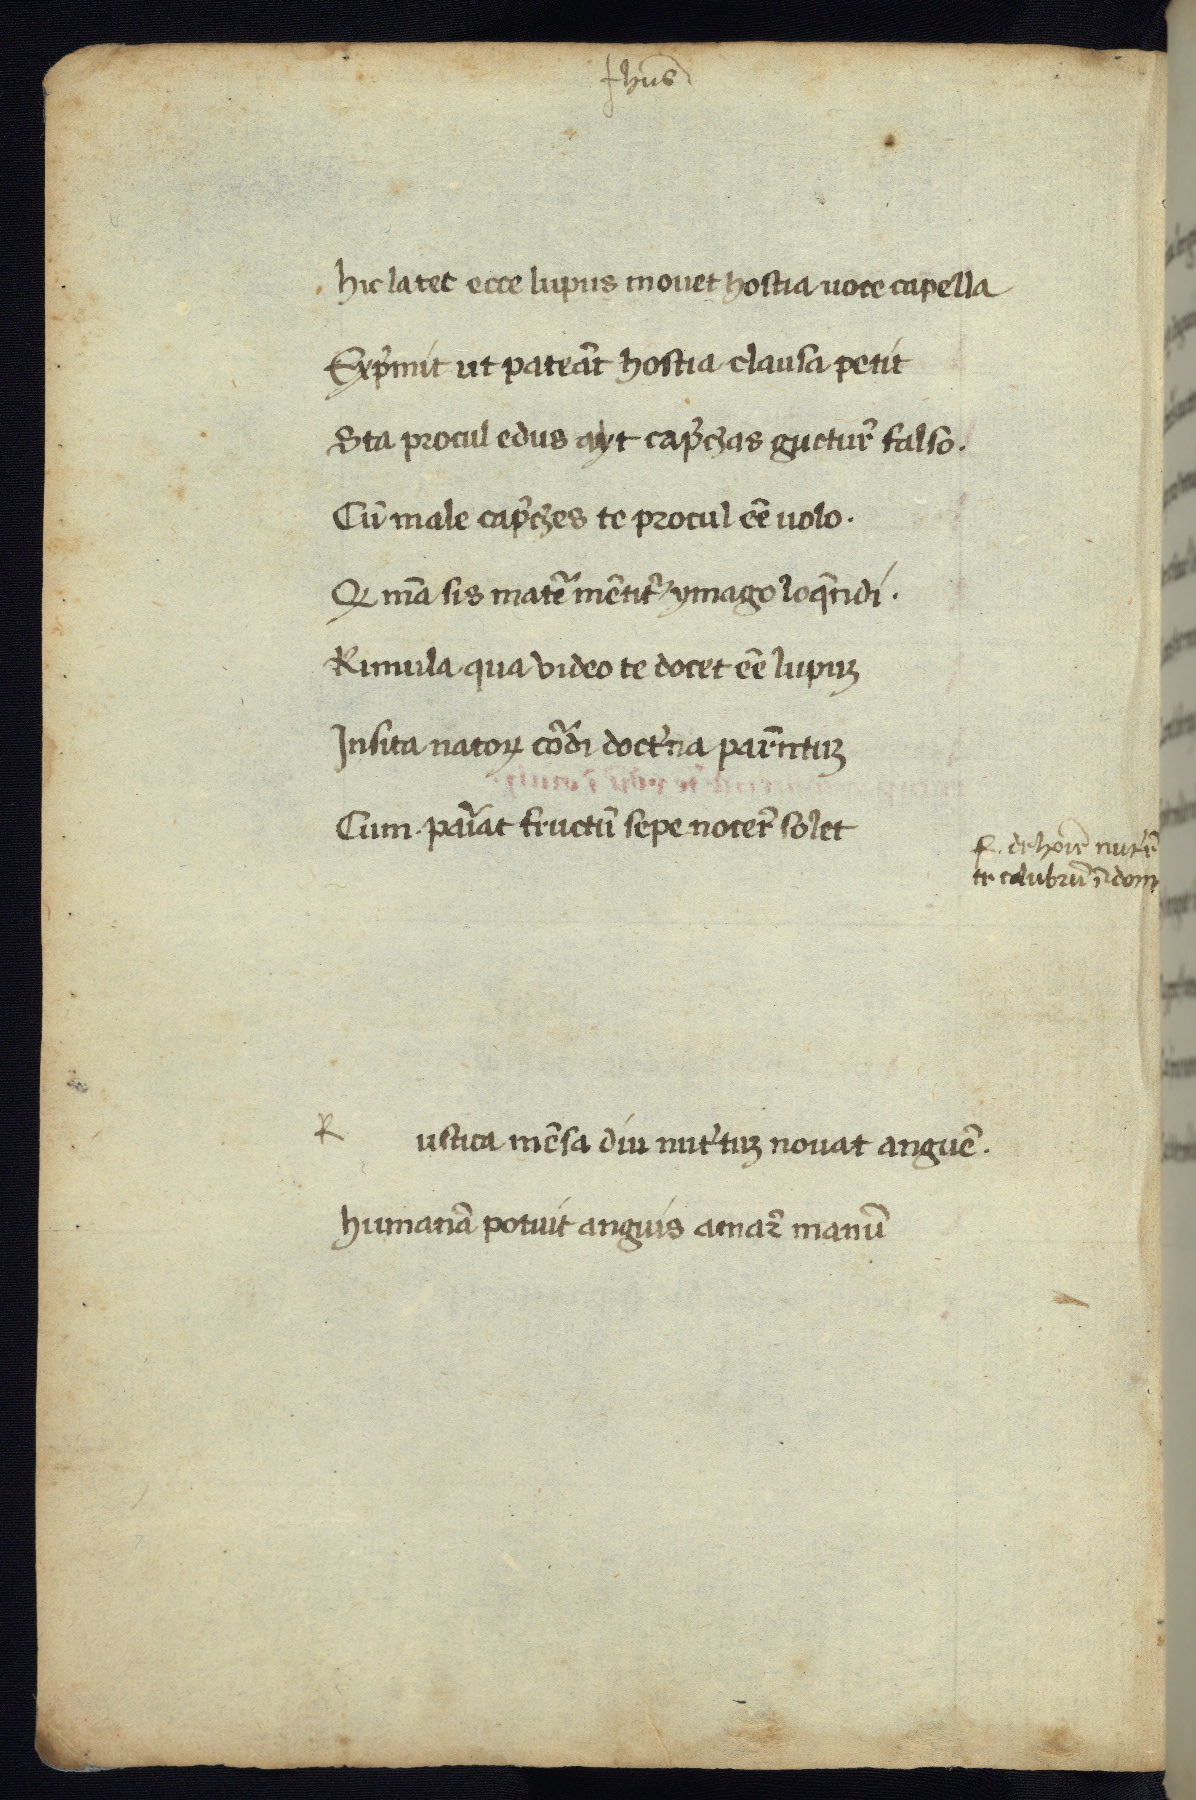 Jhũs
hic latet ecce lupus mouet hostia uoce capella
Exp̓mit ut pateãt hostia clausa petit
Sta procul edus ayt cap̓ças guctur̃ falso.
Cũ male cap̓çes te procul eẽ uolo.
Q mĩa sis matẽ mẽtit̓ ymago loq̃ndi.
Rimula qua video te docet eẽ lupuʒ
Insita natoꝝ cõdi doct̓na par̃ntuʒ
Cum pariat fructũ sepe nocer̃ solet
R. de hoĩe nut̓ẽ
te colubrũ ĩ dom
R ustica mẽsa diu nut̓tuʒ nouat anguẽ.
humanã potuit anguis amar̃ manũ